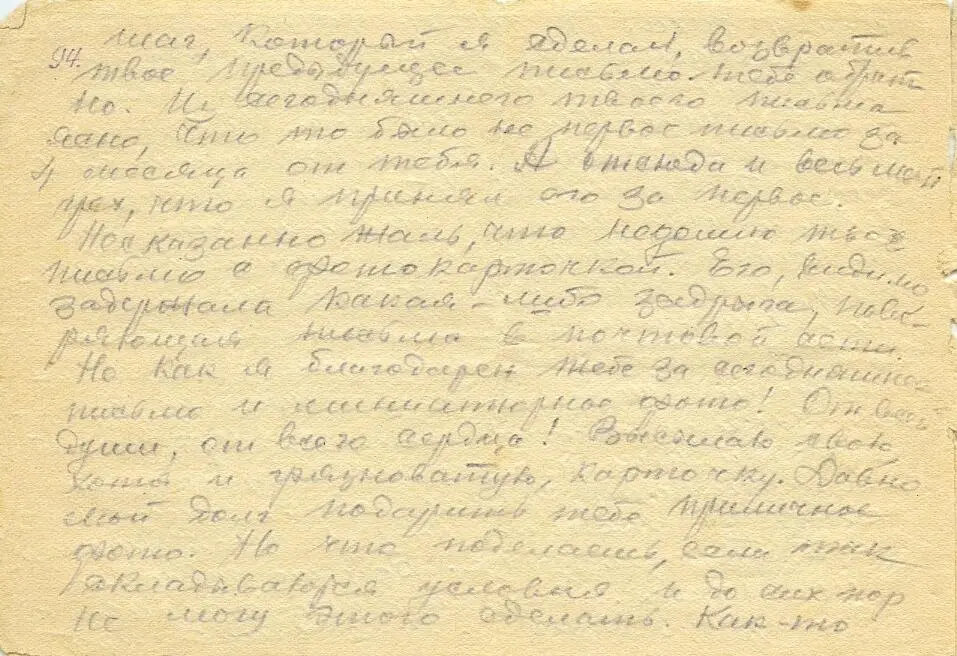 94. шаг, который я сделал, возвратив
твое предыдущее письмо тебе обрат-
но. Из сегодняшнего твоего письма
ясно, что то было не первое письмо за
4 месяца от тебя. А отсюда и весь мой
грех, что я принял его за первое.
Несказанно жаль, что недошло твое
письмо с фотокарточкой. Его, видимо,
задержала какая-либо, пове-
ряющая письма в почтовой сети.
Но как я благодарен тебе за сегодняшнее
письмо и миниатюрное фото! От всей
души, от всего сердца! Высылаю свою,
хотя и грязноватую, карточку. Давно
мой долг подарить тебе приличное
фото. Но что поделаешь, если так
складываются условия и до сих пор
не могу этого сделать. Как-то